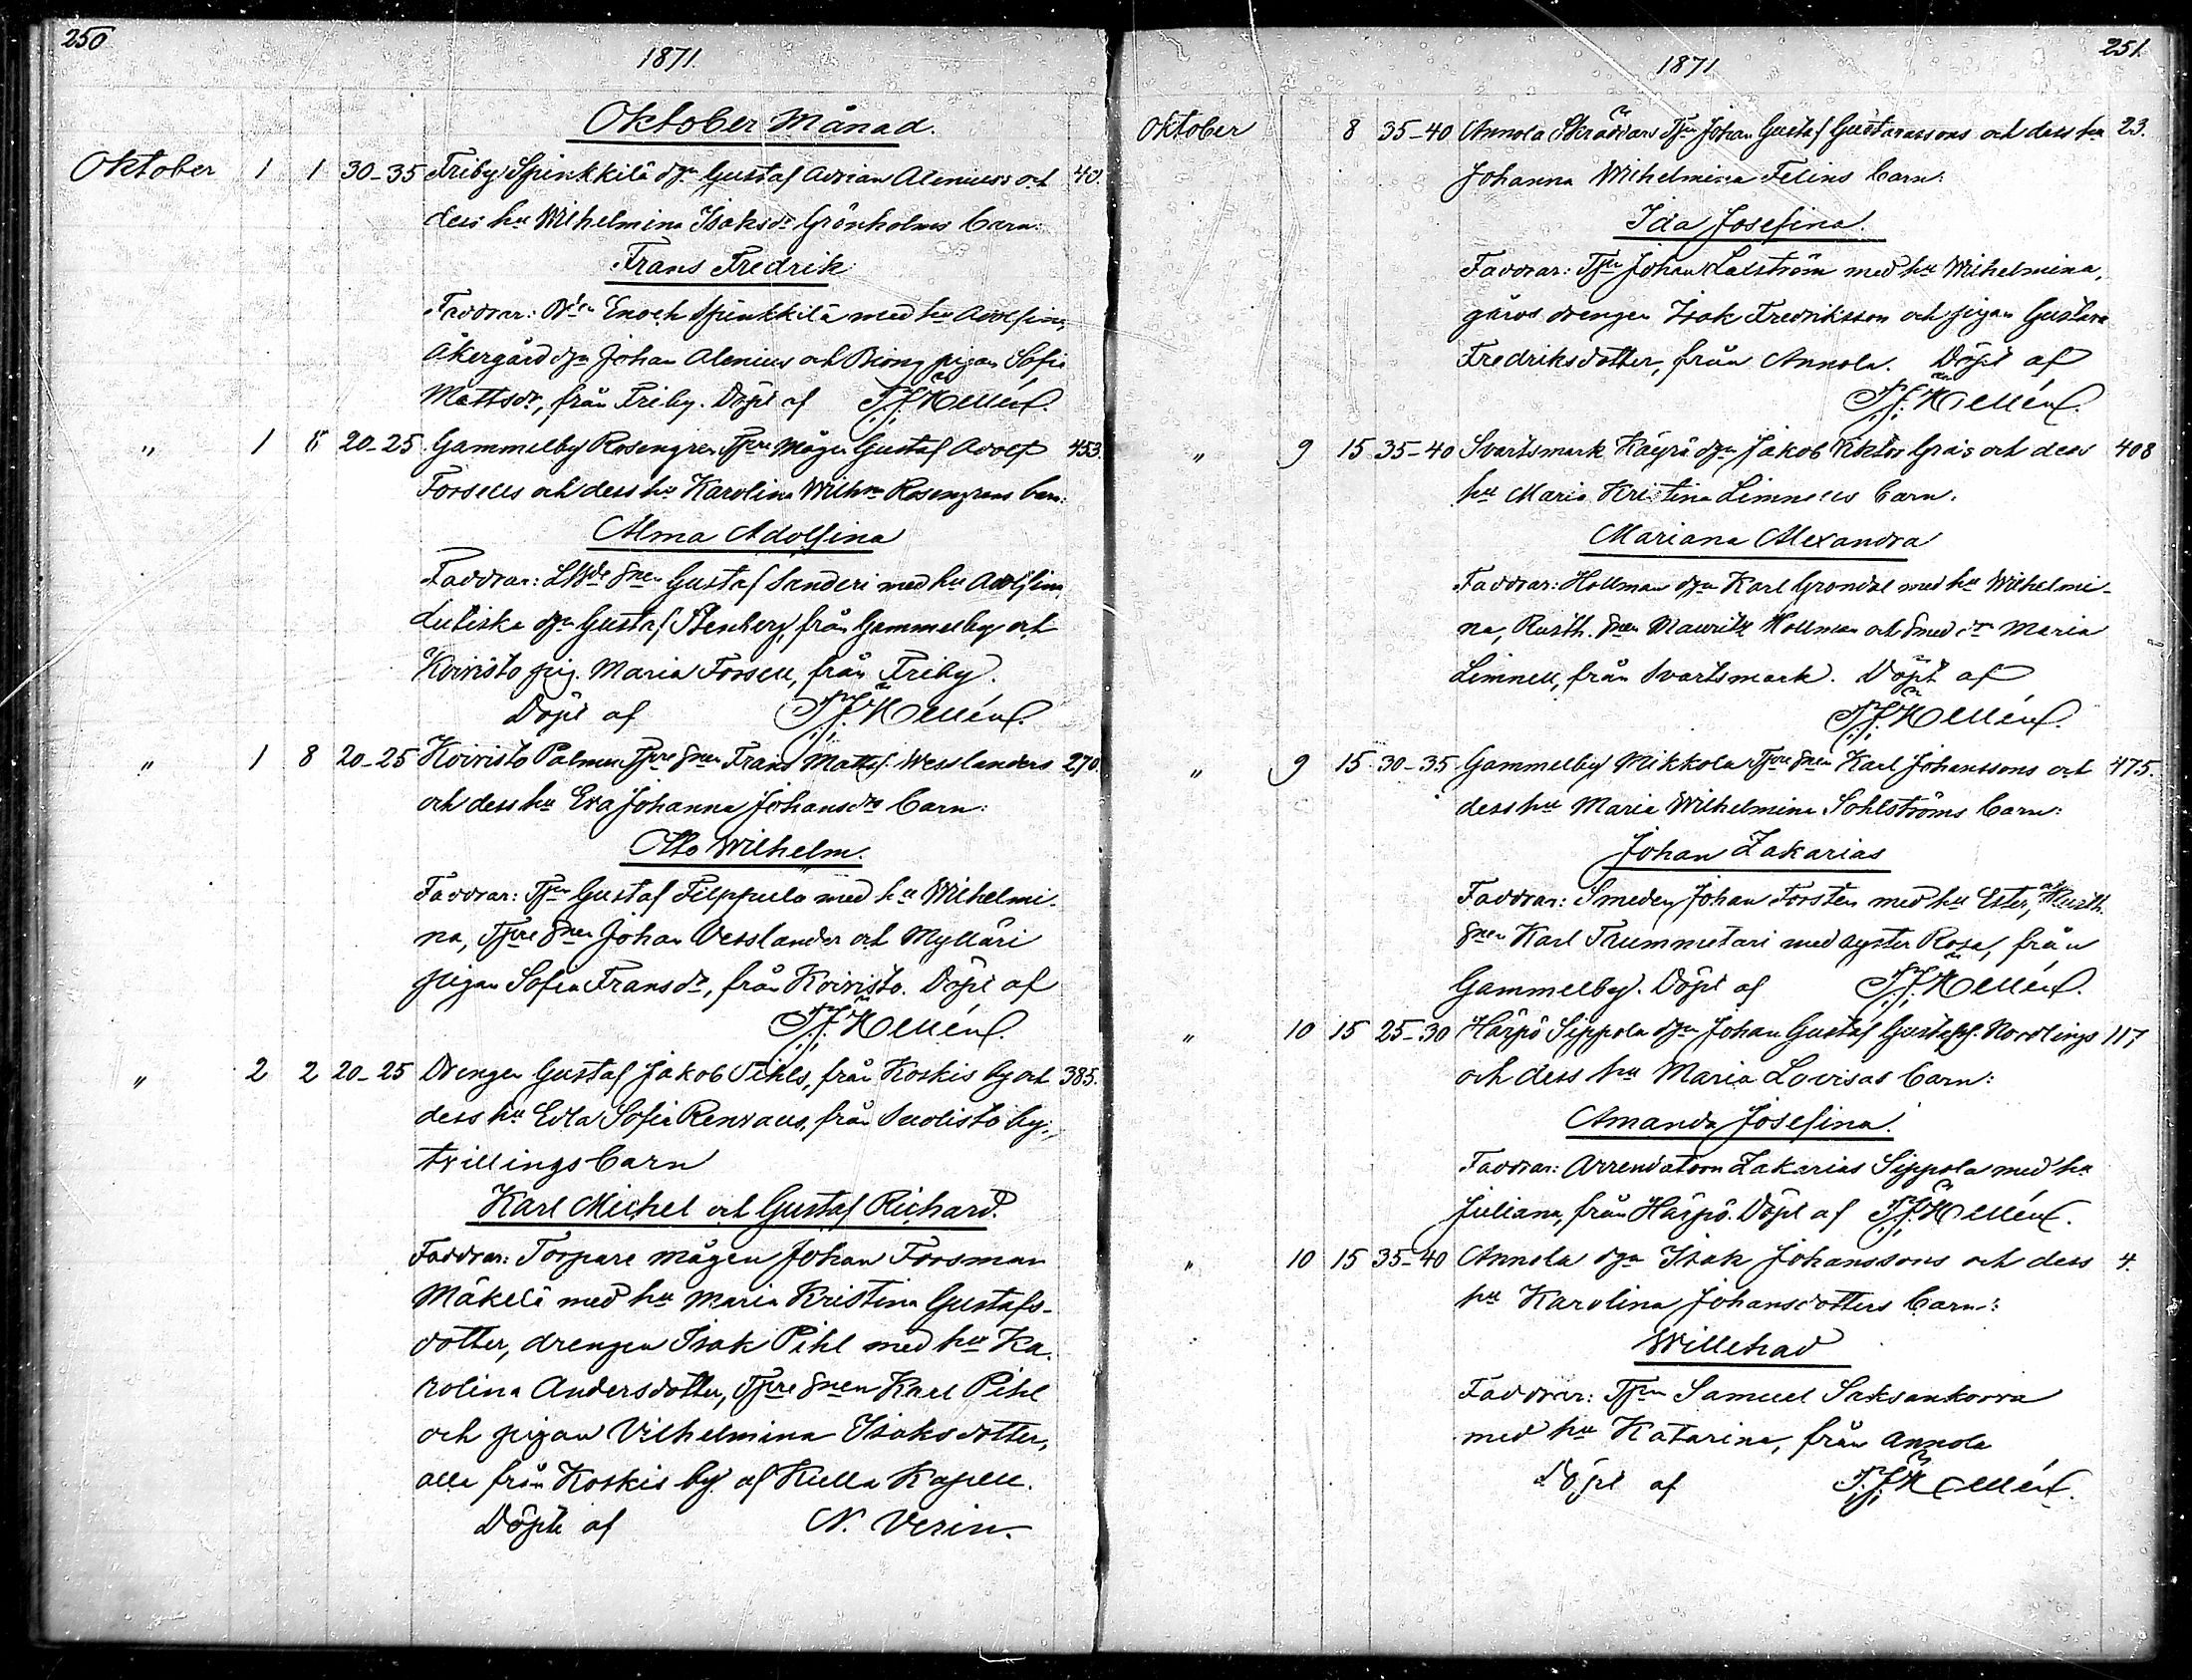 250
1871.
Oktober Månad.
Oktober 1 1 30-35 Friby Spinkkilä dgn Gustaf Adrian Alenius's och 40.
dess hu Wilhelmina Isaksdr Grönholms barn:
Frans Fredrik
Faddrar: Enoch Spinkkilä med hu Adolfina,
Åkergård dgn Johan Alenius och Biong pigan Sofia
Mattsdr, från Friby. Döpt af F. J. Hellén.
" 1 8 20-25 Gammelby Rosengren Tpre mågen Gustaf Adolf 453.
Forsells och dess hu Karolina Wilhna Rosengrens barn:
Alma Adolfina
Faddrar: Gustaf Sanderi med hu Adolfina,
dgn Gustaf Stenberg, från Gammelby och
Koivisto pig. Maria Forsell, från Friby.
Döpt af F. J. Hellén.
" 1 8 20-25 Koivisto Palmun Tpre snen Frans Mattsf. Wesslanders 270.
och dess hu Eva Johanna Johansdrs barn:
Otto Wilhelm.
Faddrar: Tpn Gustaf Filppula med hu Wilhelmi-
na, Tpre snen Johan Vesslander och Mylläri
pigan Sofia Fransdr, från Koivisto. Döpt af
F. J. Hellén.
" 2 2 20-25 Drengen Gustaf Jakob Pihls, från Koskis by och 385.
dess hu Edla Sofia Renvalls, från Suolisto by,
tvillingsbarn
Karl Michel och Gustaf Richard.
Faddrar: Torpare mågen Johan Forsman
Mäkelä med hu Maria Kristina Gustafs-
dotter, drengen Isak Pihl med hu Ka-
rolina Andersdotter, Tpre snen Karl Pihl
och pigan Vilhelmina Isaksdotter,
alla från Koskis by af Kulla Kapell.
Döpte af N. Verin.
251.
1871
Oktober 8 35-40 Annola Skräddars Tpn Johan Gustaf Gustavassons och dess hu 23.
Johanna Wilhelmina Felins barn:
Ida Josefina.
Faddrar: Tpn Johan Laxström med hu Wilhelmina,
gårds drengen Isak Fredriksson och pigan Gustava
Fredriksdotter, från Annola. Döpt af
F. J. Hellén.
" 9 15 35-40 Svartsmark Käyrä dgn Jakob Viktor Gräs och dess 408
hu Maria Kristina Limnells barn.
Mariana Alexandra
Faddrar: Hollman dgn Karl Grondal med hu Wilhelmi-
na, Rusth. snen Mauritz Hollman och smed dr Maria
Limnell, från Svartsmark. Döpt af
F. J. Hellén.
" 9 15 30-35 Gammelby Mikkola Tpre snen Karl Johanssons och 475.
dess hu Maria Wilhelmina Sohlströms barn:
Johan Zakarias
Faddrar: Smeden Johan Forsten med hu Ester, Rusth.
snen Karl Trummetari med syster Rosa, från
Gammelby. Döpt af F. J. Hellén.
" 10 15 25-30 Härpö Sippola dgn Johan Gustaf Gustafsf. Nordlings 117
och dess hu Maria Lovisas barn:
Amanda Josefina.
Faddrar: Arrendatorn Zakarias Sippola med hu
Juliana, från Härpö. Döpt af F. J. Hellén.
" 10 15 35-40 Annola dgn Isak Johanssons och dess 4.
hu Karolina Johansdotters barn:
Willehad
Faddrar: Tpn Samuel Saksankorva
med hu Katarina, från Annola
Döpt af F. J. Hellén.